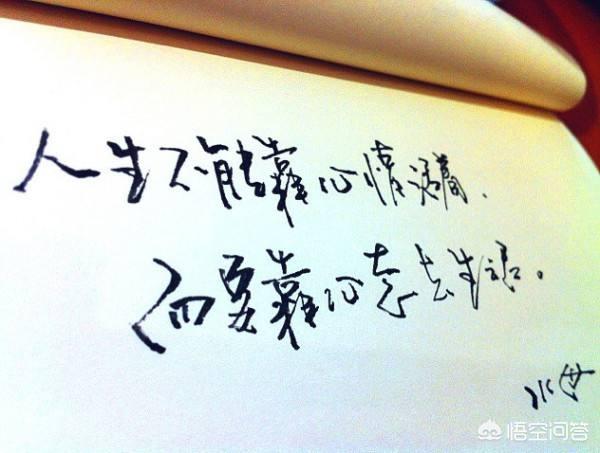 人生不能靠心情活着，
而要靠心态去生活。
水母
悟空问答